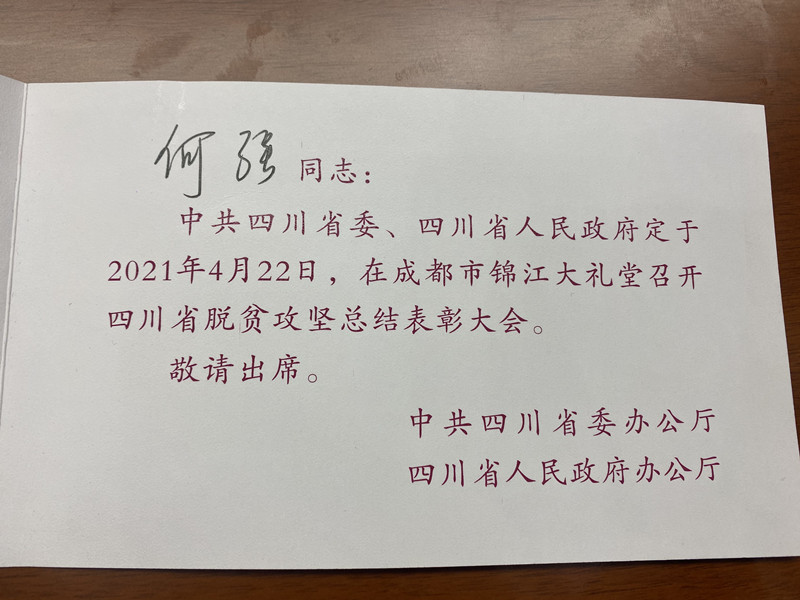 何强 同志：
中共四川省委、四川省人民政府定于
2021年4月22日，在成都市锦江大礼堂召开
四川省脱贫攻坚总结表彰大会。
敬请出席。
中共四川省委办公厅
四川省人民政府办公厅